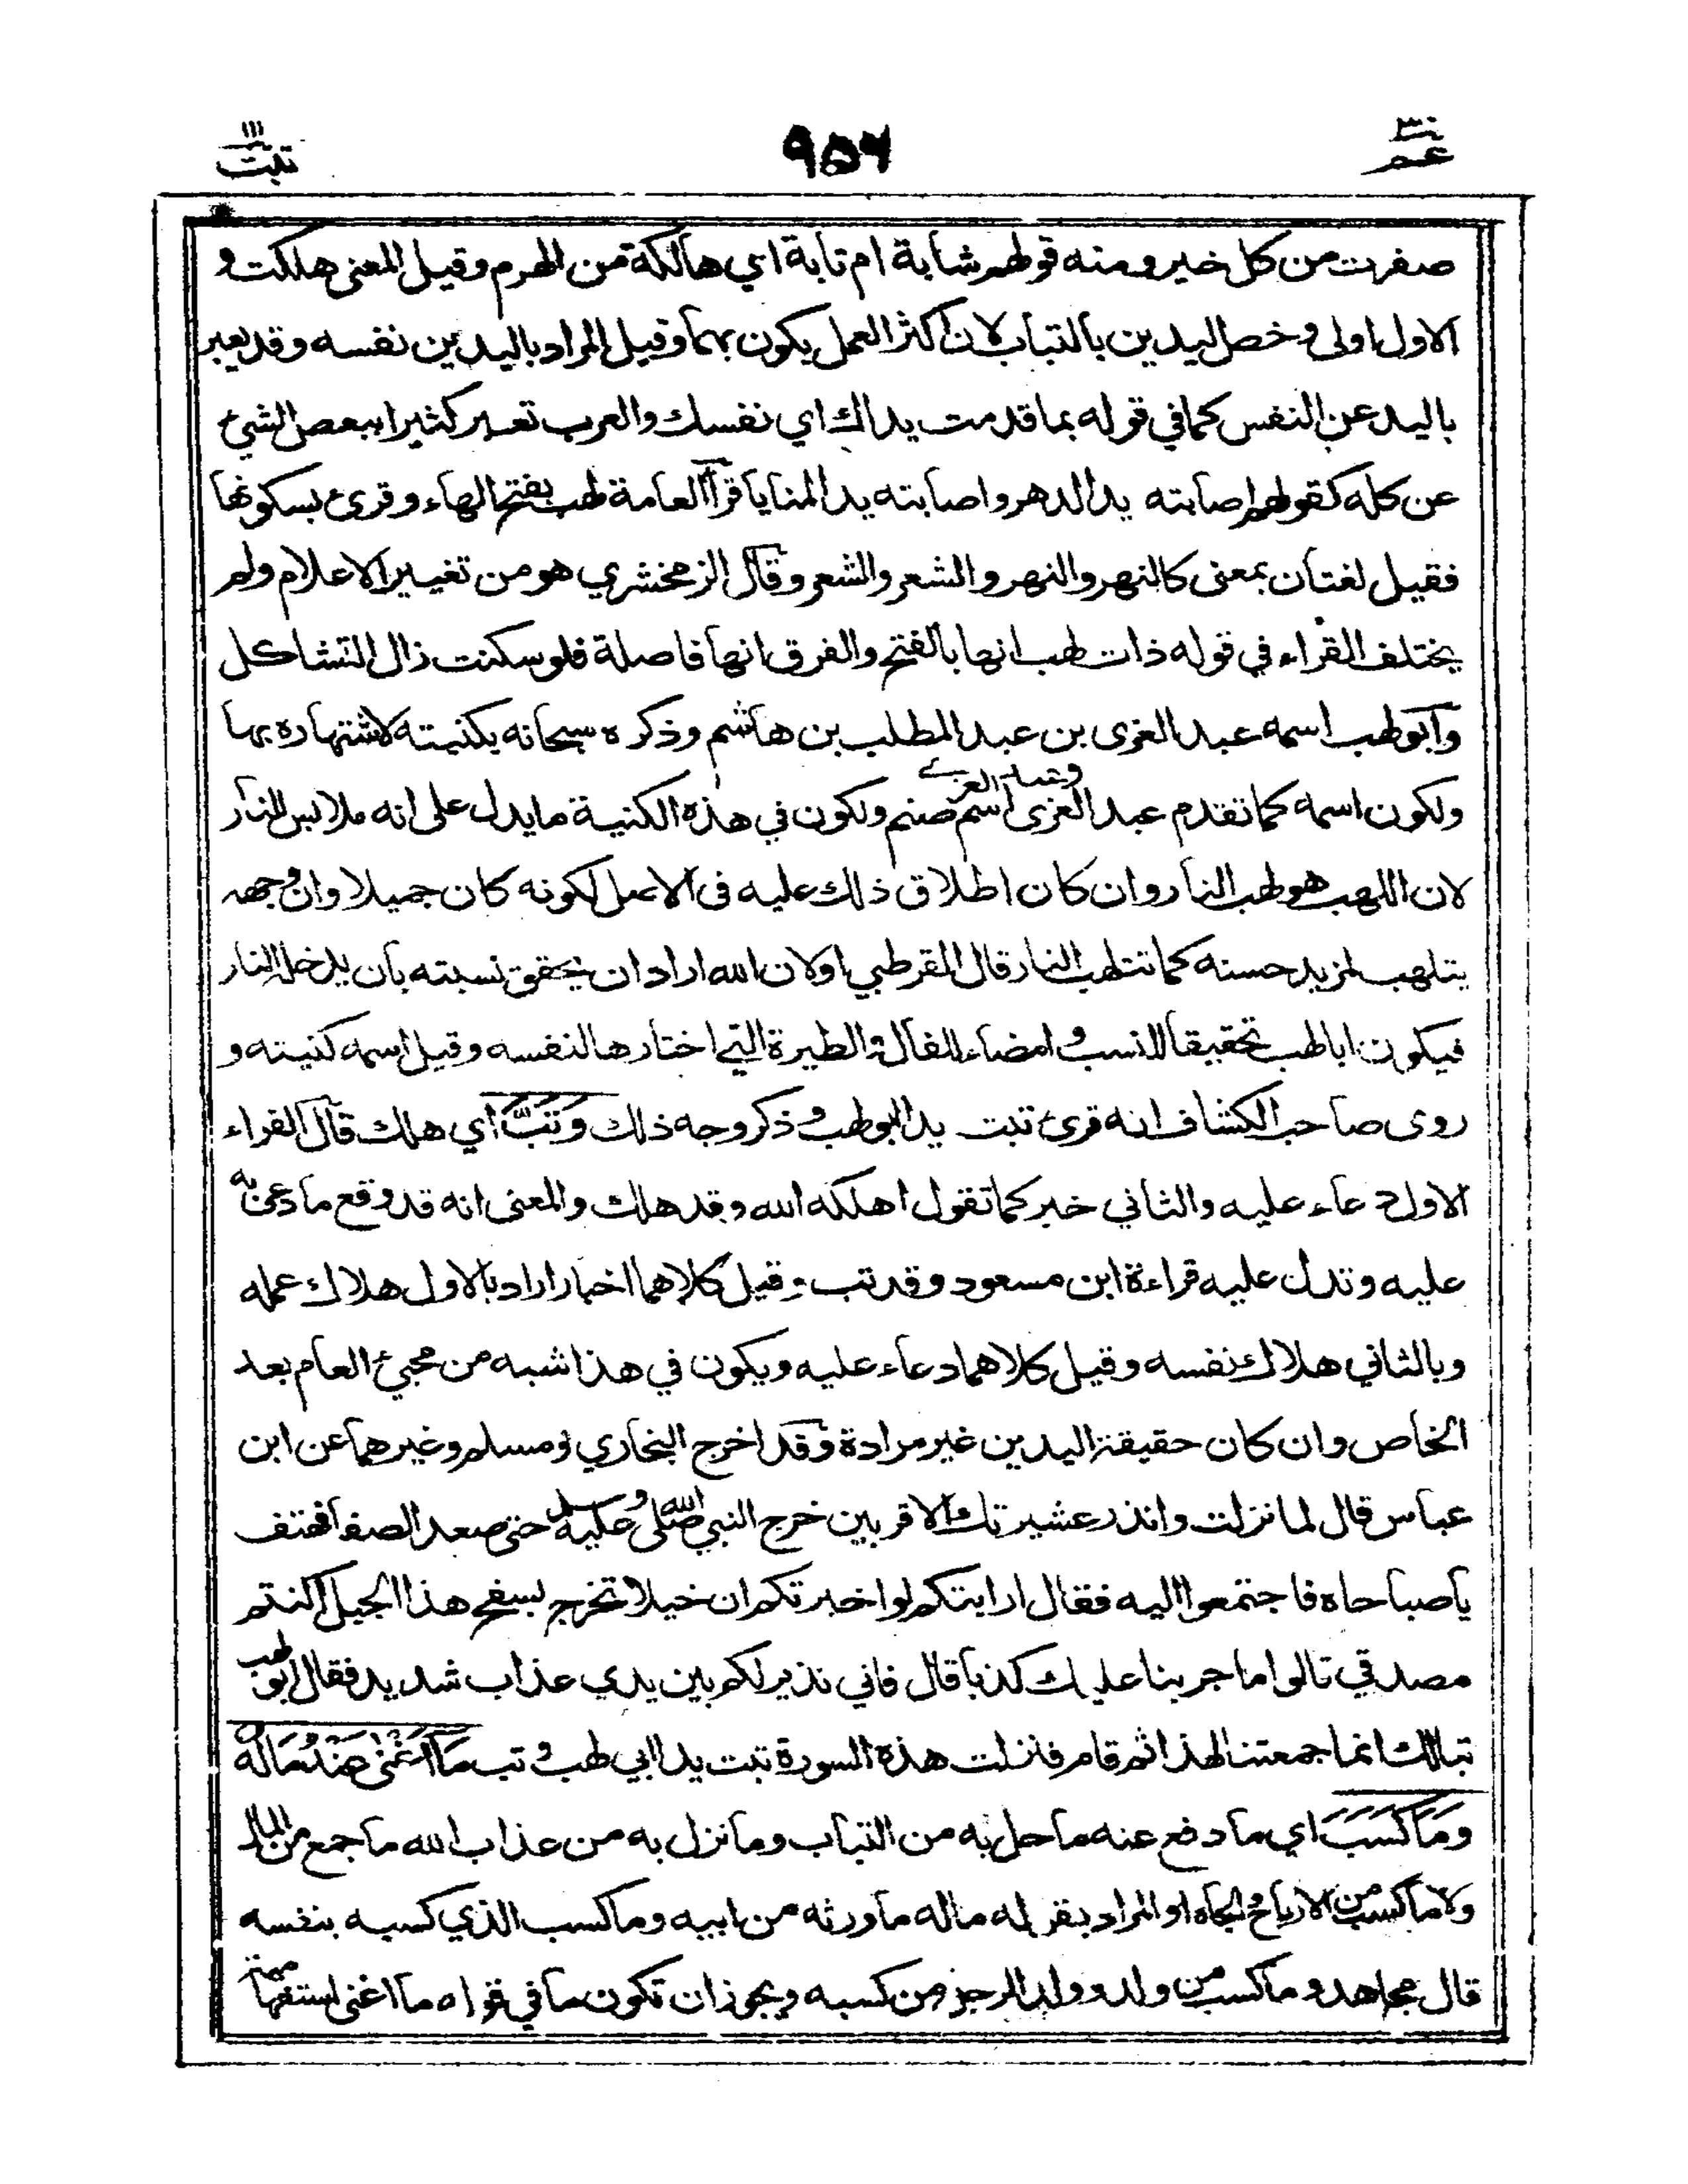 عم ٣٠
٩٥٦
تبت ١١١
صفرت من كل خير ومنه قولهم شابة ام تابة اي هالكة من الهرم وقيل المعنى هلكت و
الاول اولى وخص اليدين بالتباب لان اكثر العمل يكون بهما وقيل المراد باليدين نفسه وقد يعبر
باليد عن النفس كما في قوله بما قدمت يداك اي نفسك والعرب تعبر كثيرا ببعض الشيئ
عن كله كقولهم اصابته يد الدهر واصابته يد المنايا قرأ العامة لهب بفتح الهاء وقرئ بسكونها
فقيل لغتان بمعنى كالنهر والنهر والشعر والشعر وقال الزمخشري هو من تغيير الاعلام ولم
يختلف القراء في قوله ذات لهب انها بالفتح والفرق انها فاصلة فلو سكنت زال التشاكل
وابو لهب اسمه عبد العزى بن عبد المطلب بن هاشم وذكره سبحانه بكنيته لاشتهاره بها
ولكون اسمه كما تقدم عبد العزى والعزى اسم صنم ولكون في هذه الكنية ما يدل على انه ملابس للنار
لان اللهب هو لهب النار وان كان اطلاق ذلك عليه في الاصل لكونه كان جميلا وان وجهه
يتلهب لمزيد حسنه كما تتلهب النار قال القرطبي اولان الله اراد ان يحقق نسبته بان يدخله النار
فيكون ابا لهب تحقيقا للنسب و امضاء للفال والطيرة التي اختارها لنفسه وقيل اسمه كنيته و
روى صاحب الكشاف انه قرئ تبت يدا ابو لهب وذكر وجه ذلك وَتَبَّ اي هلك قال الفراء
الاول دعاء عليه والثاني خبر كما تقول اهلكه الله وقد هلك والمعنى انه قد وقع ما دعى به
عليه وتدل عليه قراءة ابن مسعود وقد تب وقيل كلاهما اخبار اراد بالاول هلاك عمله
وبالثاني هلاك نفسه وقيل كلاهما دعاء عليه ويكون في هذا شبه من مجيئ العام بعد
الخاص وان كان حقيقة اليدين غير مرادة وقد اخرج البخاري ومسلم وغيرهما عن ابن
عباس قال لما نزلت وانذر عشيرتك الاقربين خرج النبي صلى الله عليه وسلم حتى صعد الصفا فهتف
يا صباحاه فاجتمعوا اليه فقال ارايتكم لو اخبرتكم ان خيلا تخرج بسفح هذا الجبل اكنتم
مصدقي قالوا ما جربنا عليك كذبا قال فاني نذير لكم بين يدي عذاب شديد فقال ابو لهب
تبالك انما جمعتنا لهذا ثم قام فنزلت هذه السورة تبت يدا ابي لهب وتب مَا أَغْنَى عَنْهُ مَالُهُ
وَمَا كَسَبَ اي ما دفع عنه ما حل به من التباب وما نزل به من عذاب الله ما جمع من المال
ولا ما كسب من الارباح والجاه او المراد بقوله ماله ما ورثه من ابيه وما كسب الذي كسبه بنفسه
قال مجاهد وما كسب من ولد وولد الرجل من كسبه ويجوز ان تكون ما في قوله ما اغنى استفهامية